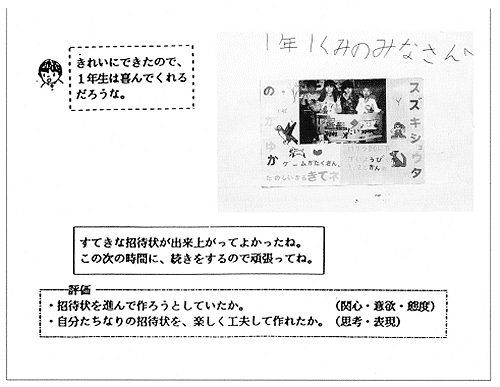 きれいにできたので、
１年生は喜んでくれる
だろうな。
１年１くみのみなさんへ
スズキショウタ
の
か
ゆ
か
ゲームがたくさん、
たのしいから きてネ
すてきな招待状が出来上がってよかったね。
この次の時間に、続きをするので頑張ってね。
評価
・招待状を進んで作ろうとしていたか。 （関心・意欲・態度）
・自分たちなりの招待状を、楽しく工夫して作れたか。（思考・表現）